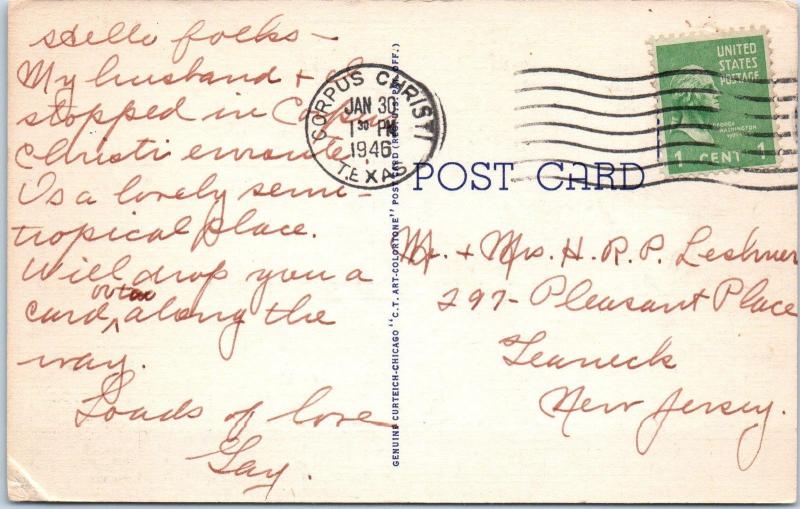 Hello folks-
My husband + I
stopped in Corpus
Christi enroute.
Is a lovely semi-
tropical place.
Will drop you a
card along the
way.
Loads of love
Gay.
CORPUS CHRISTI
JAN 30
1 30 PM
1946
TEXAS
GENUINE CURTEICH-CHICAGO "C.T. ART-COLORTONE" POST CARD (REG. U.S. PAT. OFF.)
UNITED
STATES
POSTAGE
GEORGE
WASHINGTON
1 CENT 1
POST CARD
Mr. + Mrs. H. R. P. Leshner
297- Pleasant Place
Teaneck
New Jersey.